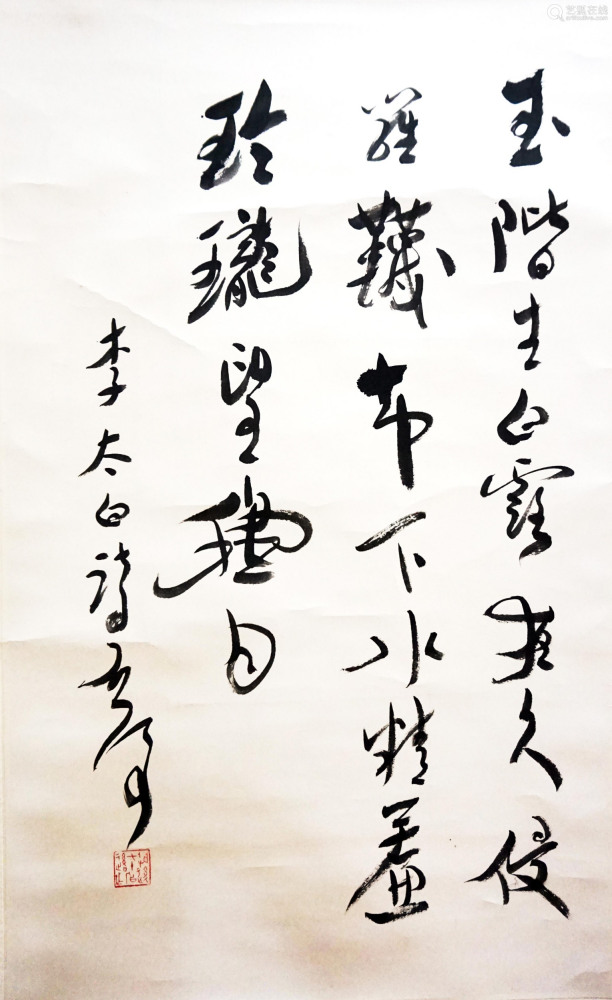 玉階生白露夜久侵
羅襪却下水精簾
玲瓏望穐月
李太白詩
艺氣在线